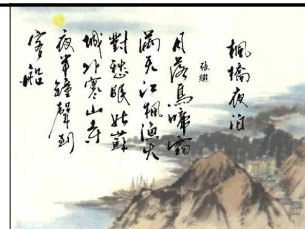 楓橋夜泊
張繼
月落烏啼霜
滿天江楓漁火
對愁眠姑蘇
城外寒山寺
夜半鐘聲到
客船